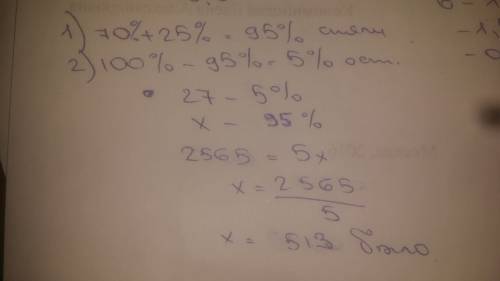 1) 70% + 25% = 95% сняли
2) 100% - 95% = 5% ост.
27 - 5%
x - 95%
2565 = 5x
x = 2565
5
x = 513 было